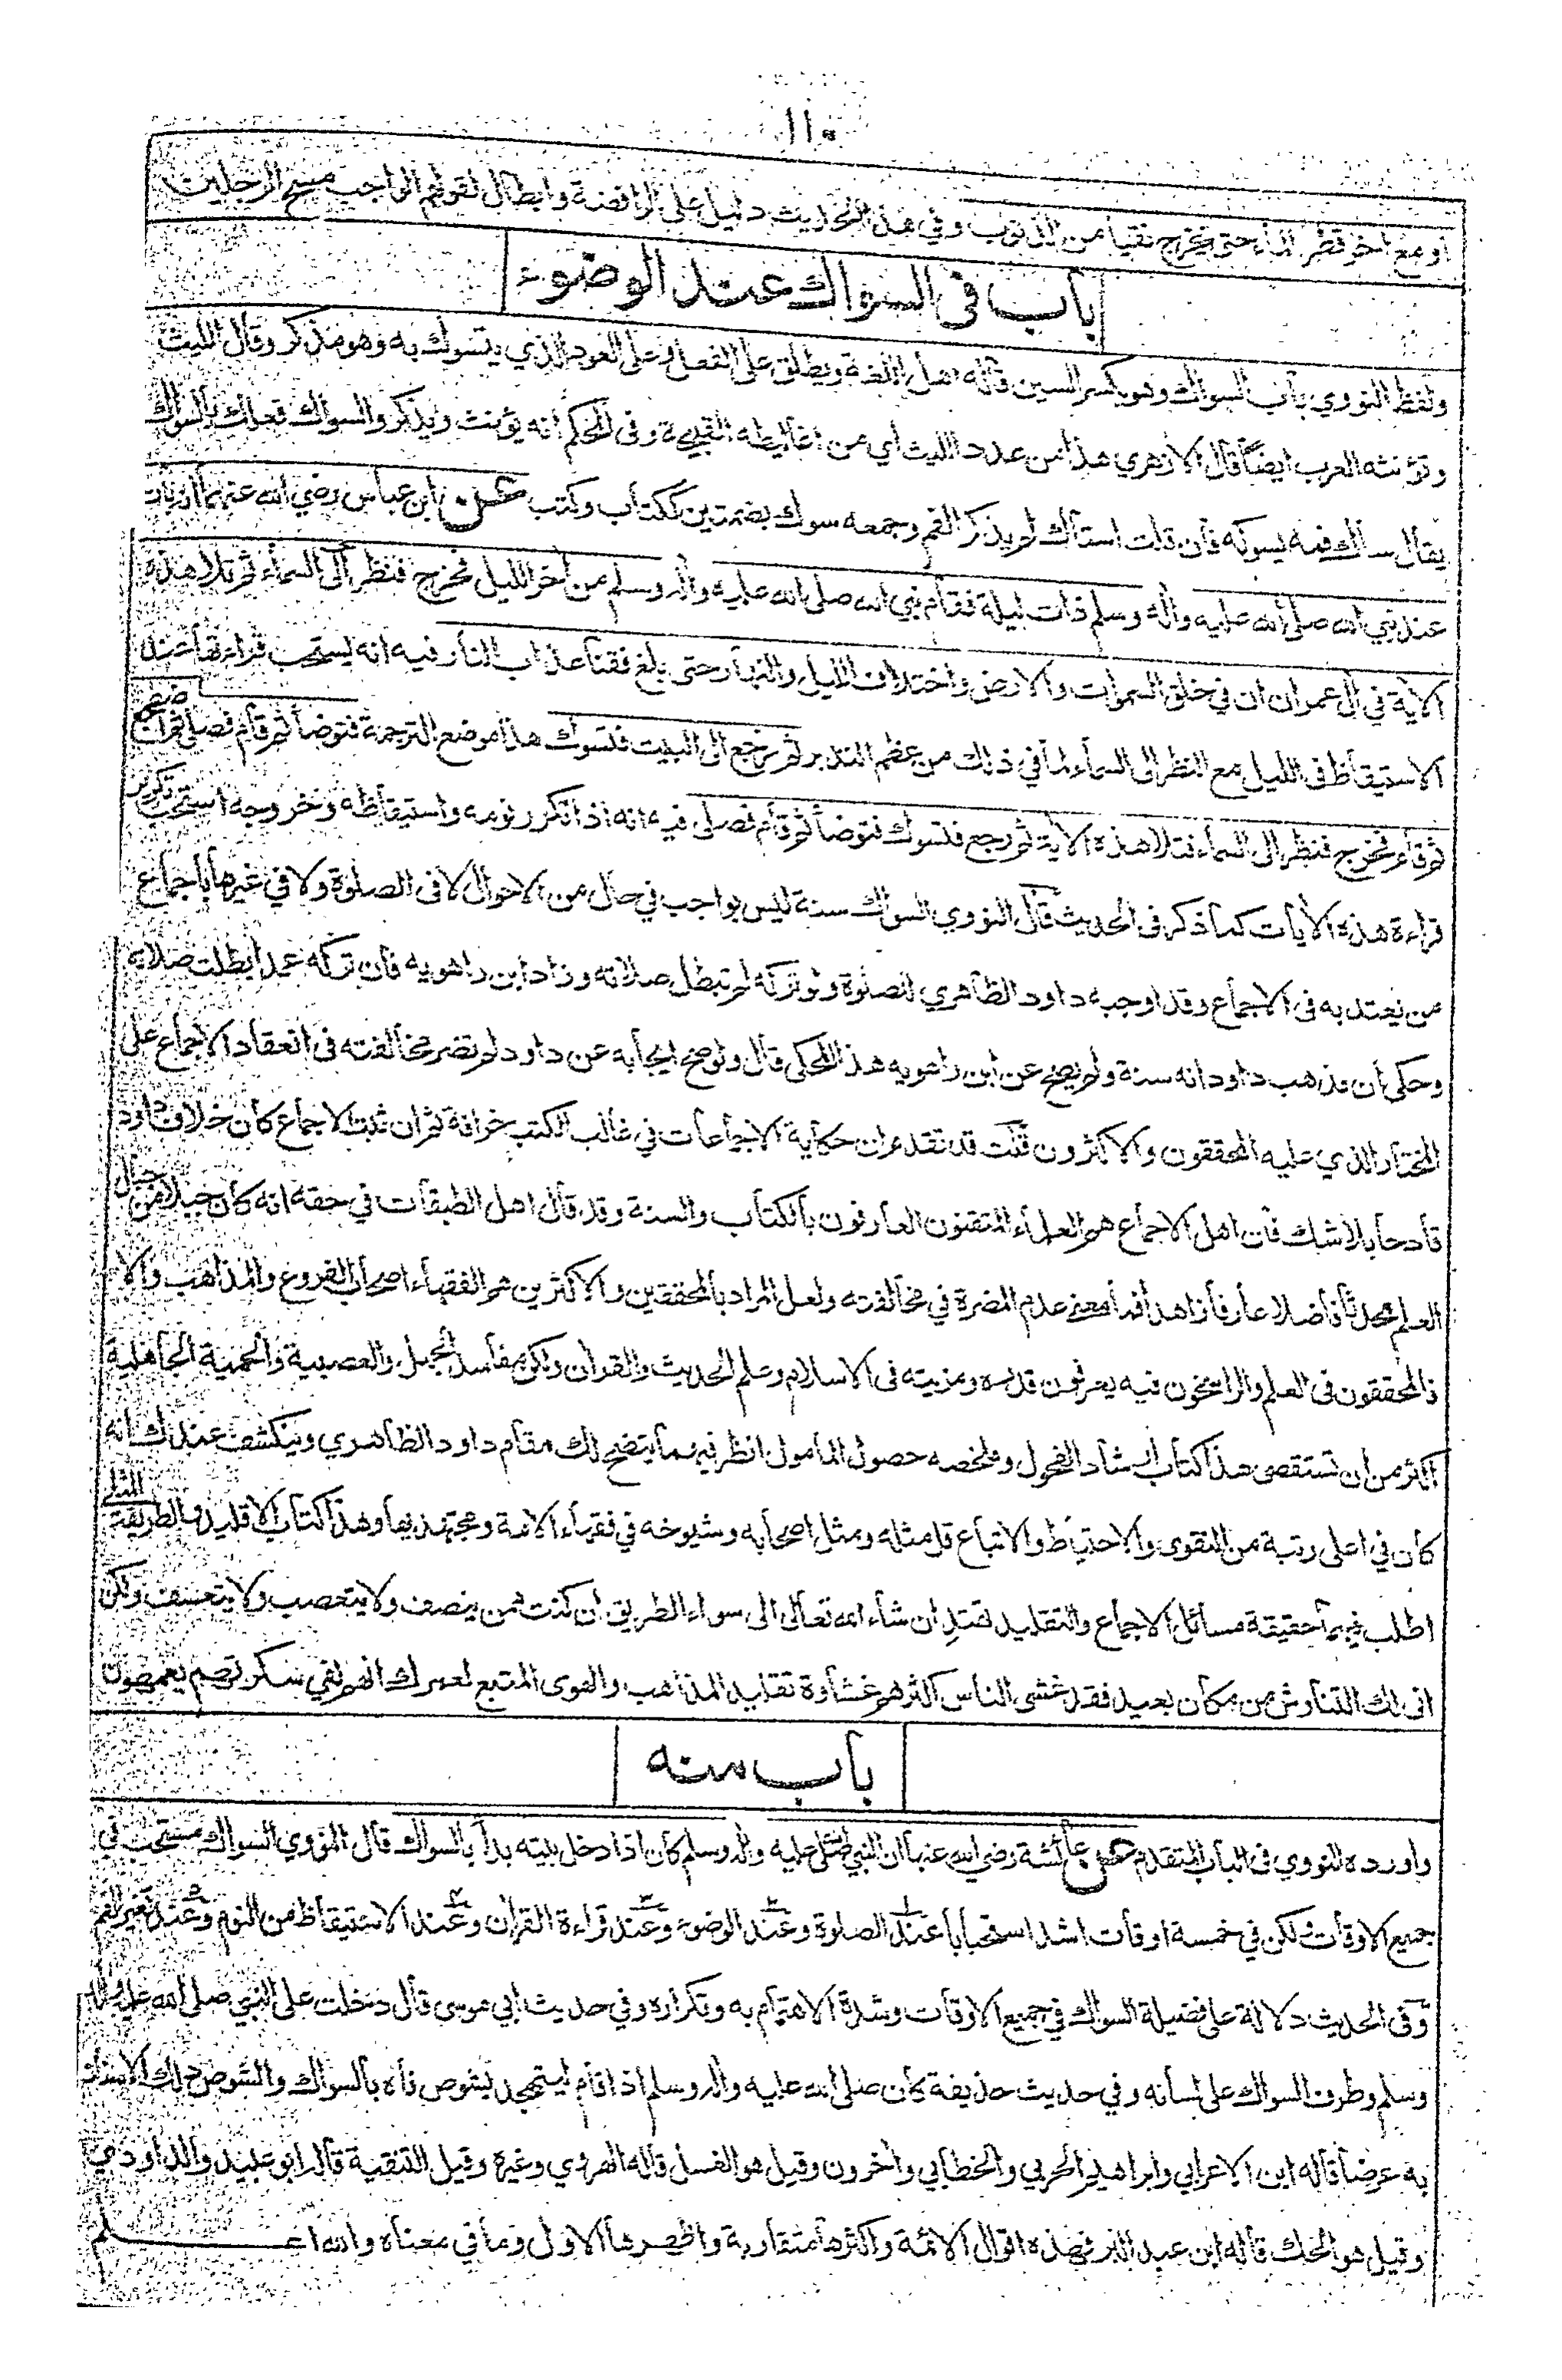 ١١٠
او مع اخر قطر الماء حتى يخرج نقيا من الذنوب وفي هذا الحديث دليل على الرافضة وابطال لقولهم الواجب مسح الرجلين
باب في السواك عند الوضوء
ولفظ النووي باب السواك وهو بكسر السين قاله اهل اللغة ويطلق على الفعل وعلى العود الذي يتسوك به وهو مذكر وقال الليث
وتؤنثه العرب ايضا قال الازهري هذا من عدد الليث اي من اغاليطه القبيحة وفي المحكم انه يؤنث ويذكر والسواك فعلك بالسواك
يقال ساك فمه يسوكه فان قلت استاك لم يذكر الفم وجمعه سوك بضمتين ككتاب وكتب عن ابن عباس رضي الله عنهما انه بات
عند نبي الله صلى الله عليه واله وسلم ذات ليلة فقام نبي الله صلى الله عليه واله وسلم من اخر الليل فخرج فنظر الى السماء ثم تلا هذه
الاية في ال عمران ان في خلق السموات والارض واختلاف الليل والنهار حتى بلغ فقنا عذاب النار فيه انه يستحب قراءتها عند
الاستيقاظ في الليل مع النظر الى السماء لما في ذلك من عظم التدبر ثم رجع الى البيت فتسوك هذا موضع الترجمة فتوضأ ثم قام فصلى ثم اضطجع
ثم قام فخرج فنظر الى السماء فتلا هذه الاية ثم رجع فتسوك فتوضأ ثم قام فصلى فيه انه اذا تكرر نومه واستيقاظه وخروجه استحب تكرير
قراءة هذه الايات كما ذكر في الحديث قال النووي السواك سنة ليس بواجب في حال من الاحوال لا في الصلوة ولا في غيرها باجماع
من يعتد به في الاجماع وقد اوجبه داود الظاهري للصلوة ولو تركه لم تبطل صلاته وزاد ابن راهويه فان تركه عمدا بطلت صلاته
وحكى ان مذهب داود انه سنة ولم يصح عن ابن راهويه هذا المحكى قال ولو صح ايجابه عن داود لم تضر مخالفته في انعقاد الاجماع على
المختار الذي عليه المحققون والاكثرون قلت قد تقدم ان حكاية الاجماعات في غالب الكتب خرافة ثم ان ثبت الاجماع كان خلاف داود
قادحا بلا شك فان اهل الاجماع هم العلماء المتقنون العارفون بالكتاب والسنة وقد قال اهل الطبقات في حقه انه كان جبلا من جبال
العلم محدثا فاضلا عارفا زاهدا فما معنى عدم المضرة في مخالفته ولعل المراد بالمحققين والاكثرين هم الفقهاء اصحاب الفروع والمذاهب والا
فالمحققون في العلم والراسخون فيه يعرفون قدره ومزيته في الاسلام وعلم الحديث والقران ولكن مفاسد الجهل والعصبية والحمية الجاهلية
اكثر من ان تستقصى هذا كتاب ارشاد الفحول وملخصه حصول المامول انظر فيهما يتضح لك مقام داود الظاهري وينكشف عندك انه
كان في اعلى رتبة من التقوى والاحتياط والاتباع قل مثله ومثل اصحابه وشيوخه في فقهاء الائمة ومجتهديها وهذا كتاب الاقليد والطريقة المثلى
اطلب فيهما حقيقة مسائل الاجماع والتقليد تهتد ان شاء الله تعالى الى سواء الطريق ان كنت ممن ينصف ولا يتعصب ولا يتعسف ولكن
انى لك التناوش من مكان بعيد فقد غشى الناس اكثرهم غشاوة تقليد المذاهب والهوى المتبع لعمرك انهم لفي سكرتهم يعمهون
باب منه
واورده النووي في الباب المتقدم عن عائشة رضي الله عنها ان النبي صلى الله عليه واله وسلم كان اذا دخل بيته بدأ بالسواك قال النووي السواك مستحب في
جميع الاوقات ولكن في خمسة اوقات اشد استحبابا عند الصلوة وعند الوضوء وعند قراءة القران وعند الاستيقاظ من النوم وعند تغير الفم
وفي الحديث دلالة على فضيلة السواك في جميع الاوقات وشدة الاهتمام به وتكراره وفي حديث ابي موسى قال دخلت على النبي صلى الله عليه واله
وسلم وطرف السواك على لسانه وفي حديث حذيفة كان صلى الله عليه واله وسلم اذا قام ليتهجد يشوص فاه بالسواك والشوص دلك الاسنان
به عرضا قاله ابن الاعرابي وابراهيم الحربي والخطابي واخرون وقيل هو الغسل قاله الهروي وغيره وقيل التنقية قاله ابو عبيد والداودي
وقيل هو الحك قاله ابن عبد البر فهذه اقوال الائمة واكثرها متقاربة واظهرها الاول وما في معناه والله اعلم